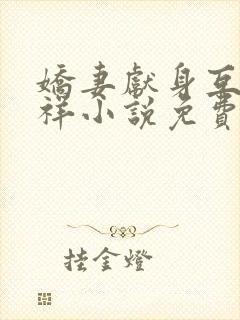 嬌妻獻身互
祥小說免費
挂金燈